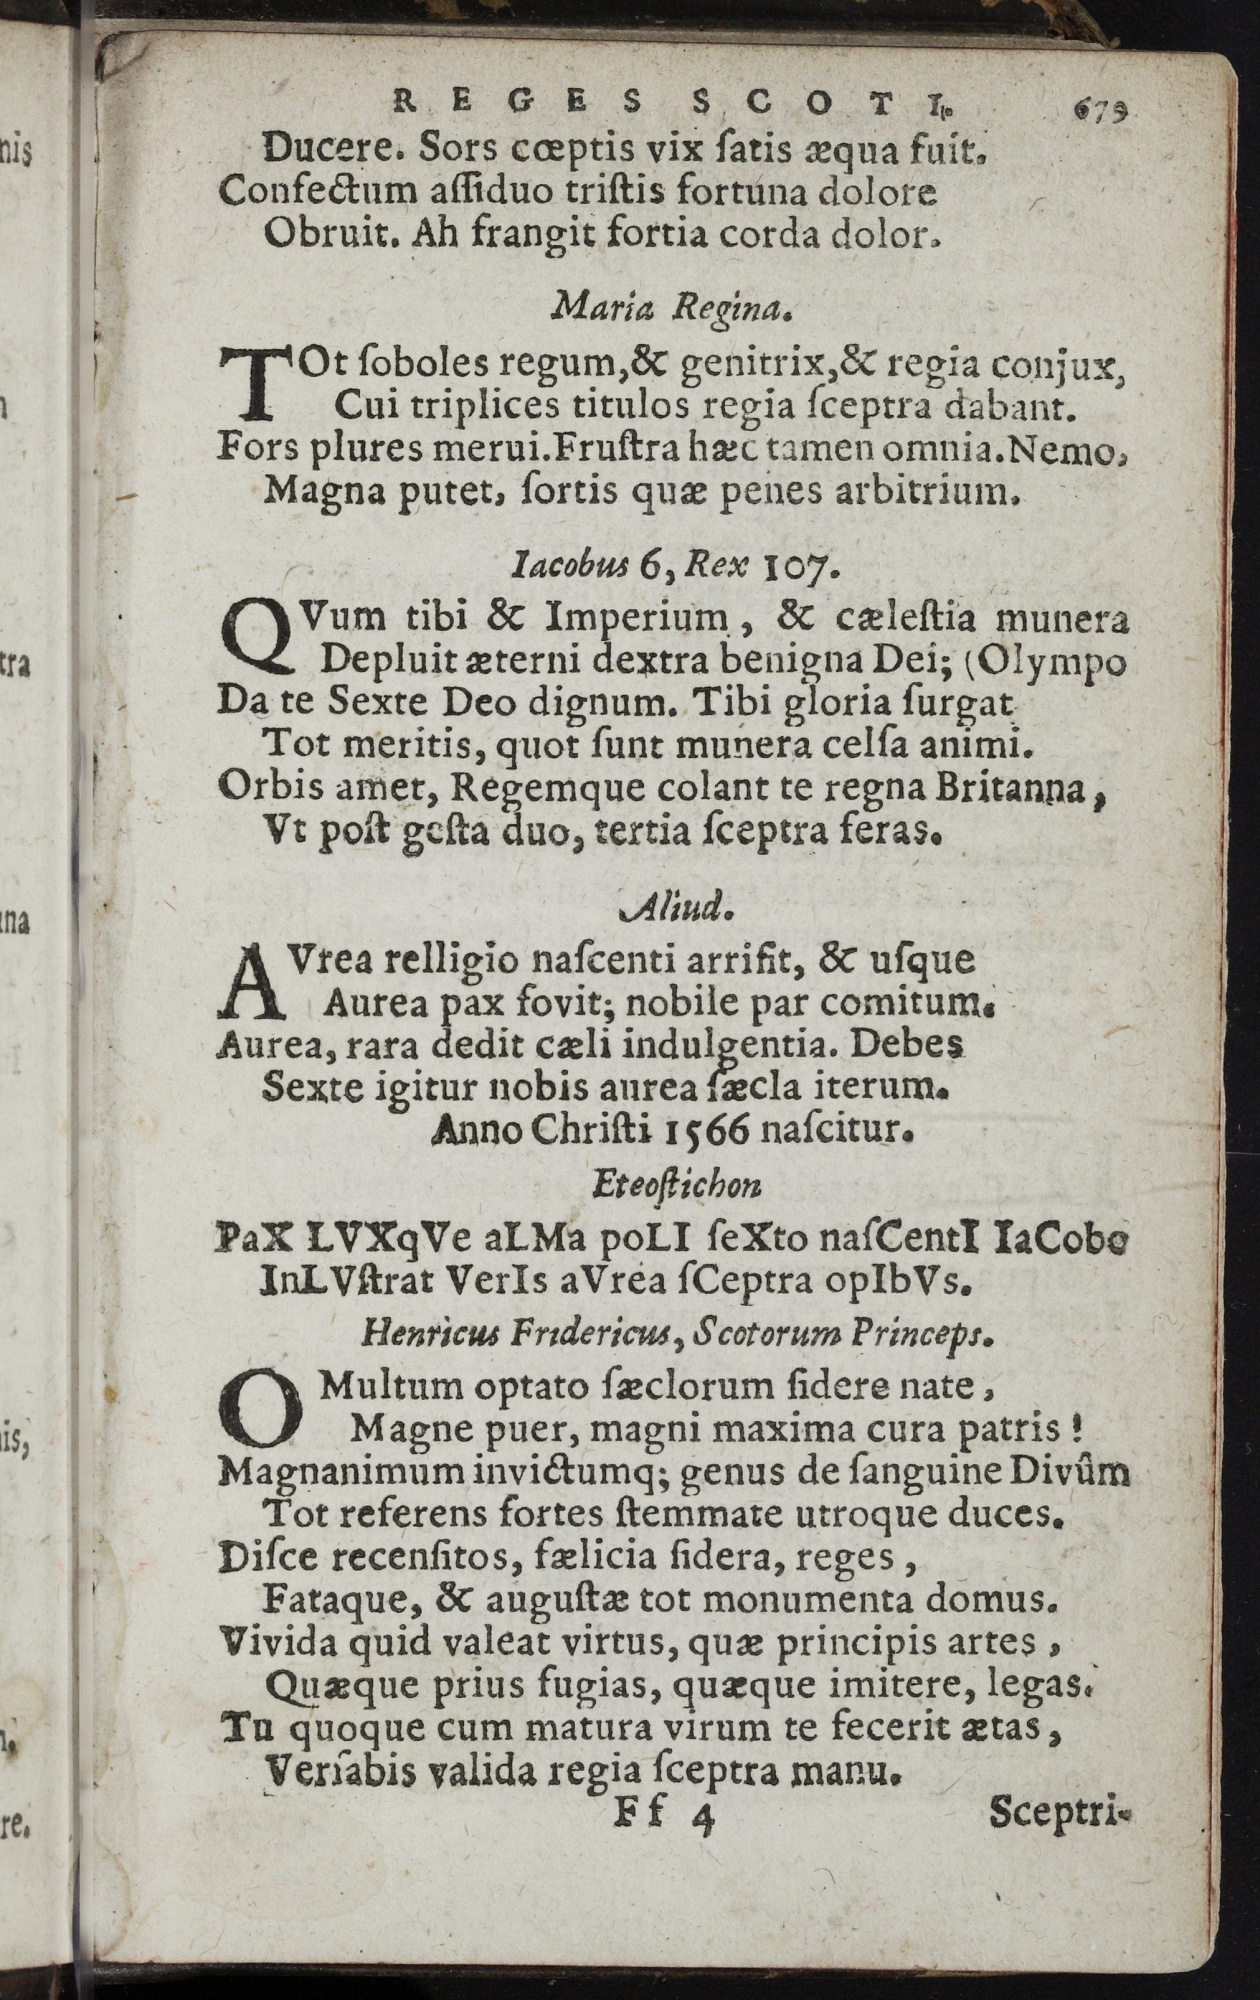 REGES SCOTI. 679
Ducere. Sors cœptis vix ſatis æqua fuit.
Confectum aſſiduo triſtis fortuna dolore
Obruit. Ah frangit fortia corda dolor.
Maria Regina.
TOt ſoboles regum,& genitrix,& regia conjux,
Cui triplices titulos regia ſceptra dabant.
Fors plures merui.Fruſtra hæc tamen omnia.Nemo,
Magna putet, ſortis quæ penes arbitrium.
Iacobus 6, Rex 107.
QVum tibi & Imperium, & cæleſtia munera
Depluit æterni dextra benigna Dei; (Olympo
Da te Sexte Deo dignum. Tibi gloria ſurgat
Tot meritis, quot ſunt munera celſa animi.
Orbis amet, Regemque colant te regna Britanna,
Vt poſt geſta duo, tertia ſceptra feras.
Aliud.
AVrea relligio naſcenti arriſit, & uſque
Aurea pax fovit; nobile par comitum.
Aurea, rara dedit cæli indulgentia. Debes
Sexte igitur nobis aurea ſæcla iterum.
Anno Chriſti 1566 naſcitur.
Eteoſtichon
PaX LVXqVe aLMa poLI ſeXto naſCentI IaCobo
InLVſtrat VerIs aVrea ſCeptra opIbVs.
Henricus Fridericus, Scotorum Princeps.
O Multum optato ſæclorum ſidere nate,
Magne puer, magni maxima cura patris!
Magnanimum invictumq; genus de ſanguine Divûm
Tot referens fortes ſtemmate utroque duces.
Diſce recenſitos, fælicia ſidera, reges,
Fataque, & auguſtæ tot monumenta domus.
Vivida quid valeat virtus, quæ principis artes,
Quæque prius fugias, quæque imitere, legas.
Tu quoque cum matura virum te fecerit ætas,
Verſabis valida regia ſceptra manu.
Ff 4 Sceptri-